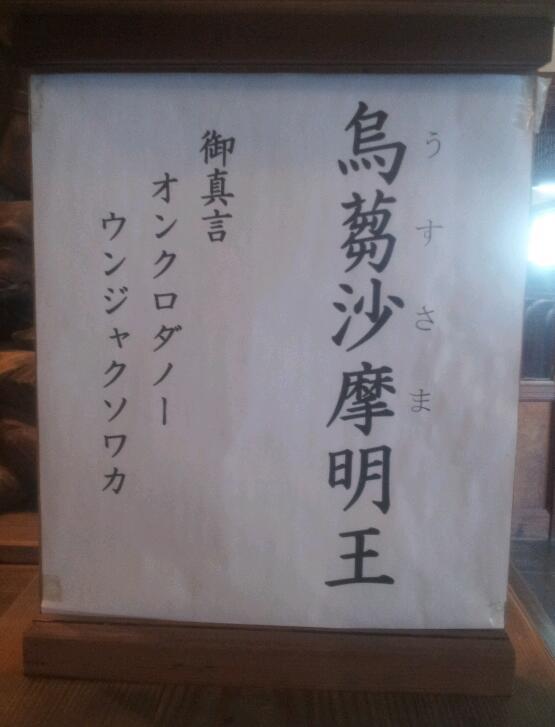 うすさま
烏蒭沙摩明王
御真言
オンクロダノー
ウンジャクソワカ